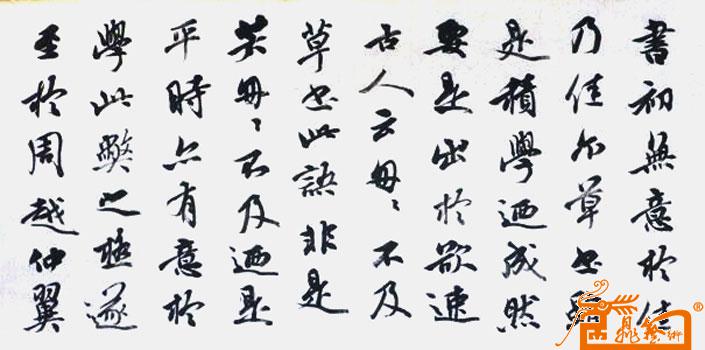 書初無意於佳
乃佳尔草書雖
是積學迺成然
要是出於欲速
古人云匆〻不及
草書此語非是
若匆〻不及迺是
平時亦有意於
學此弊之極遂
至於周越仲翼
藝術
®